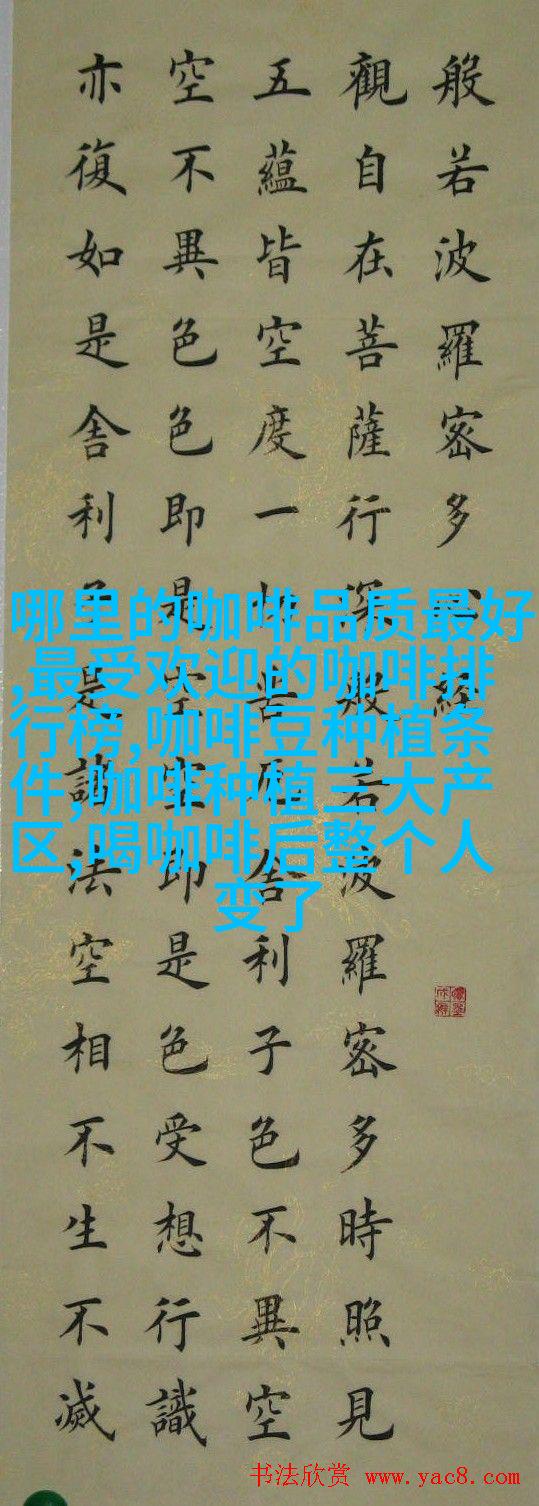 般若波羅密多心經
觀自在菩薩行深般若波羅密多時照見
五蘊皆空度一切苦厄舍利子色不異空
空不異色色即是空空即是色受想行識
亦復如是舍利子是諸法空相不生不滅
哪里的咖啡品质最好
,最受欢迎的咖啡排
行榜,咖啡豆种植条
件,咖啡种植三大产
区,喝咖啡后整个人
变了
书法欣赏 www.yac8.com